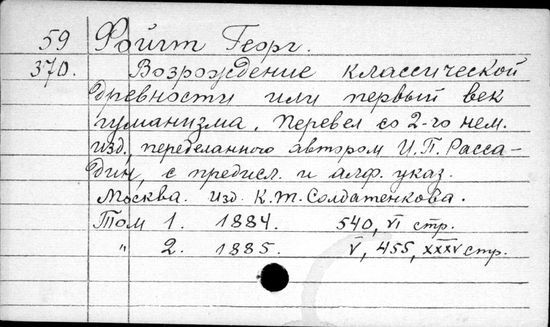 59 Фойгт Георг.
370. Возрождение классической
древности или первый век
гуманизма. Перевел со 2-го нем.
изд, переделанного автором И.П. Расса-
дин, с предисл. и алф. указ.
Москва. Изд. К.Т. Солдатенкова.
Том 1. 1884. 540, VI стр.
" 2. 1885. V, 455, XXXV стр.